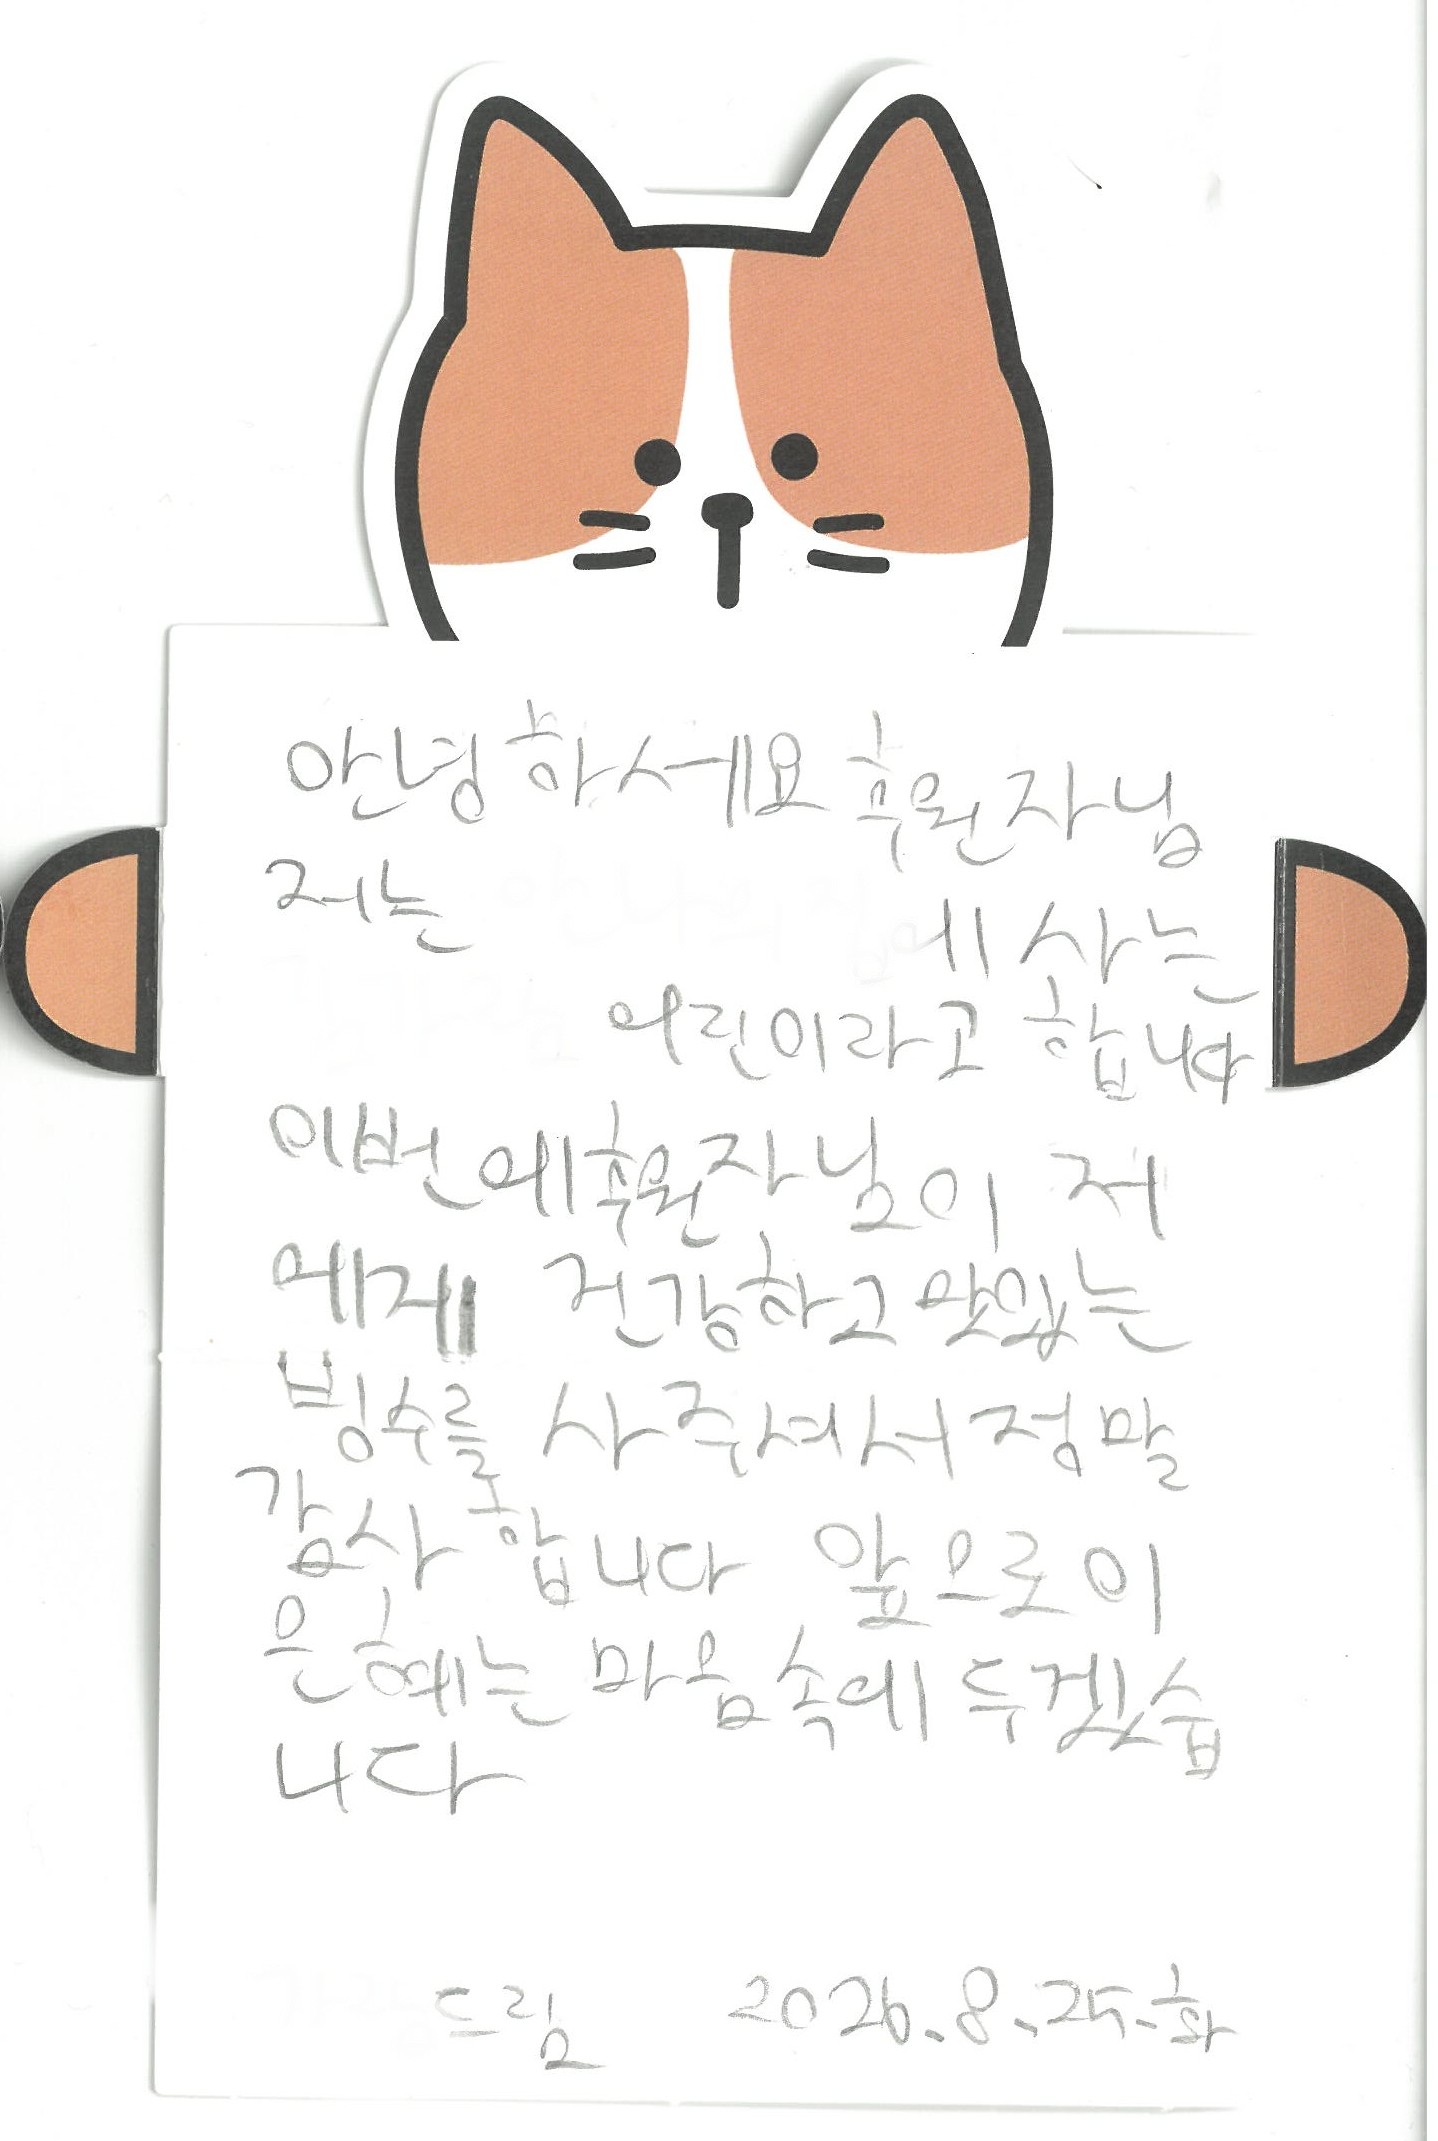 안녕하세요 후원자님
저는 에 사는
어린이라고 합니다
이번에 후원자님이 저
에게 건강하고 맛있는
빙수를 사주셔서 정말
감사 합니다 앞으로 이
은혜는 마음속에 두겠습
니다
드림 2026.8.25.화